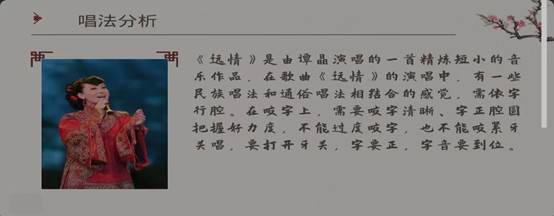 唱法分析
《远情》是由谭晶演唱的一首精炼短小的音
乐作品，在歌曲《远情》的演唱中，有一些
民族唱法和通俗唱法相结合的感觉，需依字
行腔。在咬字上，需要咬字清晰、字正腔圆
把握好力度，不能过度咬字，也不能咬紧牙
关唱，要打开牙关，字要正，字音要到位。